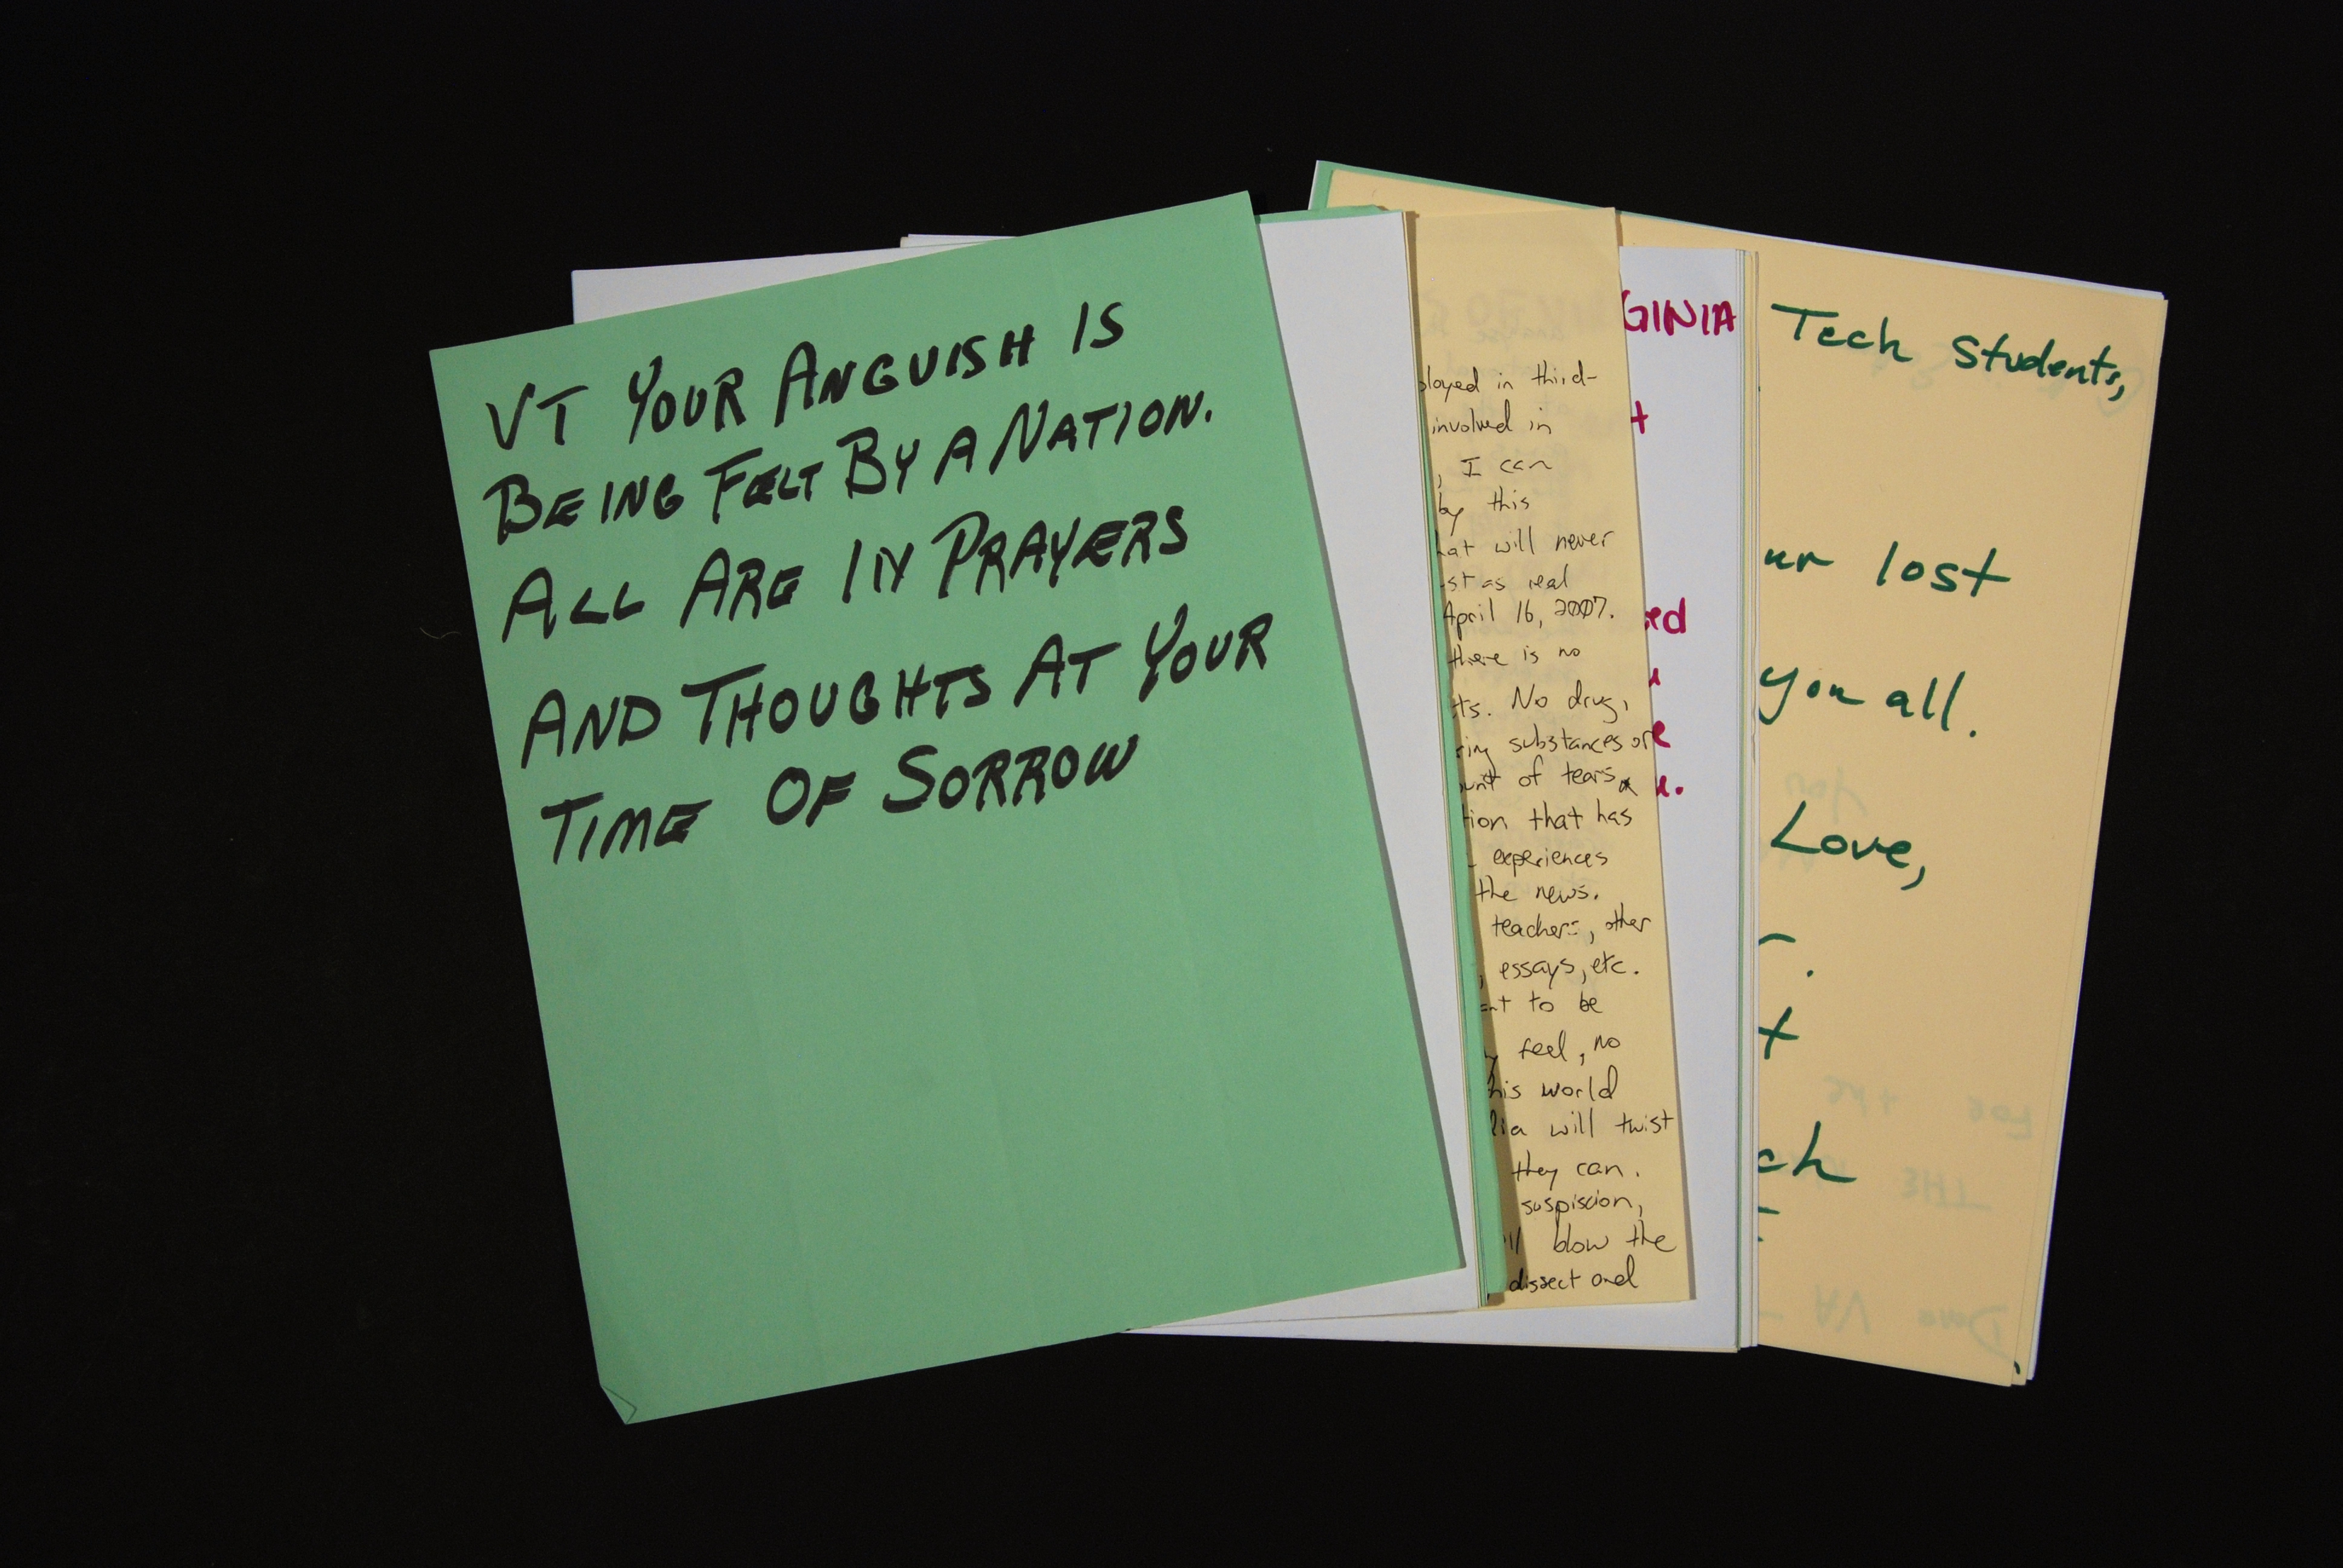 VT YOUR ANGUISH IS
BEING FELT BY A NATION.
ALL ARE IN PRAYERS
AND THOUGHTS AT YOUR
TIME OF SORROW
loyed in third-
involved in
, I can
by this
hat will never
st as real
April 16, 2007.
there is no
ts. No drug,
ring substances or
unt of tears
tion that has
experiences
the news.
teachers, other
, essays, etc.
nt to be
y feel, no
his world
dia will twist
they can.
suspiscion,
ll blow the
dissect and
GINIA
t
ed
u
e
u.
Tech Students,
ur lost
you all.
Love,
r.
t
ch